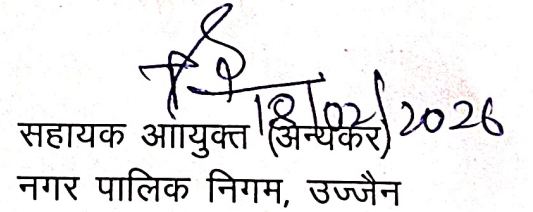 18/02/2026
सहायक आयुक्त (अन्यकर)
नगर पालिक निगम, उज्जैन